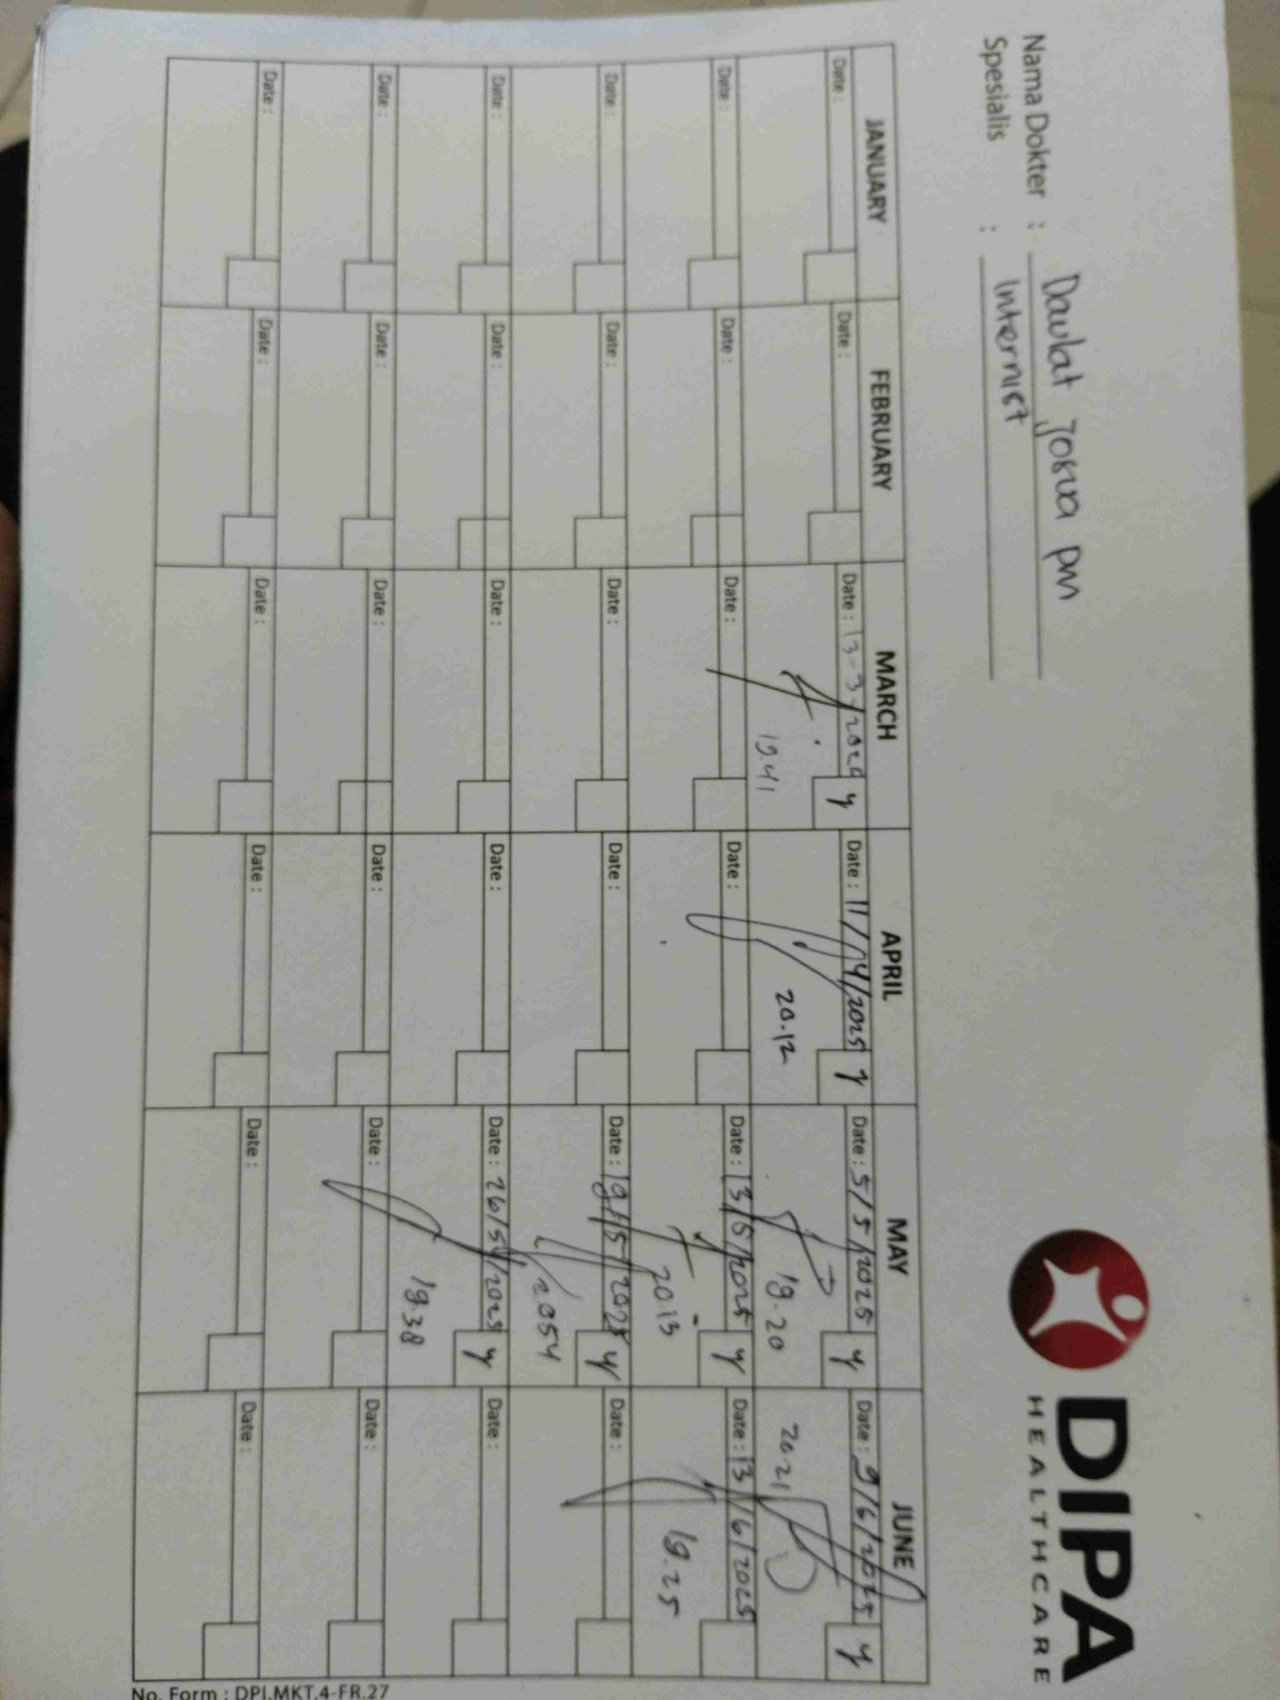 DIPA
HEALTHCARE
Nama Dokter : Daulat Josua pm
Spesialis : Internist
JANUARY FEBRUARY MARCH APRIL MAY JUNE
Date : Date : Date : 13-3-/2025 y Date : 11/04/2025 y Date : 5/5/2025 y Date : 9/6/2025 y
19.41 20.12 19.20 20.21
Date : Date : Date : Date : Date : 13/5/2025 y Date : 13/6/2025
2013 19.25
Date : Date : Date : Date : Date : 19/5/2025 y Date :
2054
Date : Date : Date : Date : Date : 26/5/2025 y Date :
19.38
Date : Date : Date : Date : Date : Date :
Date : Date : Date : Date : Date : Date :
No. Form : DPI.MKT.4-FR.27